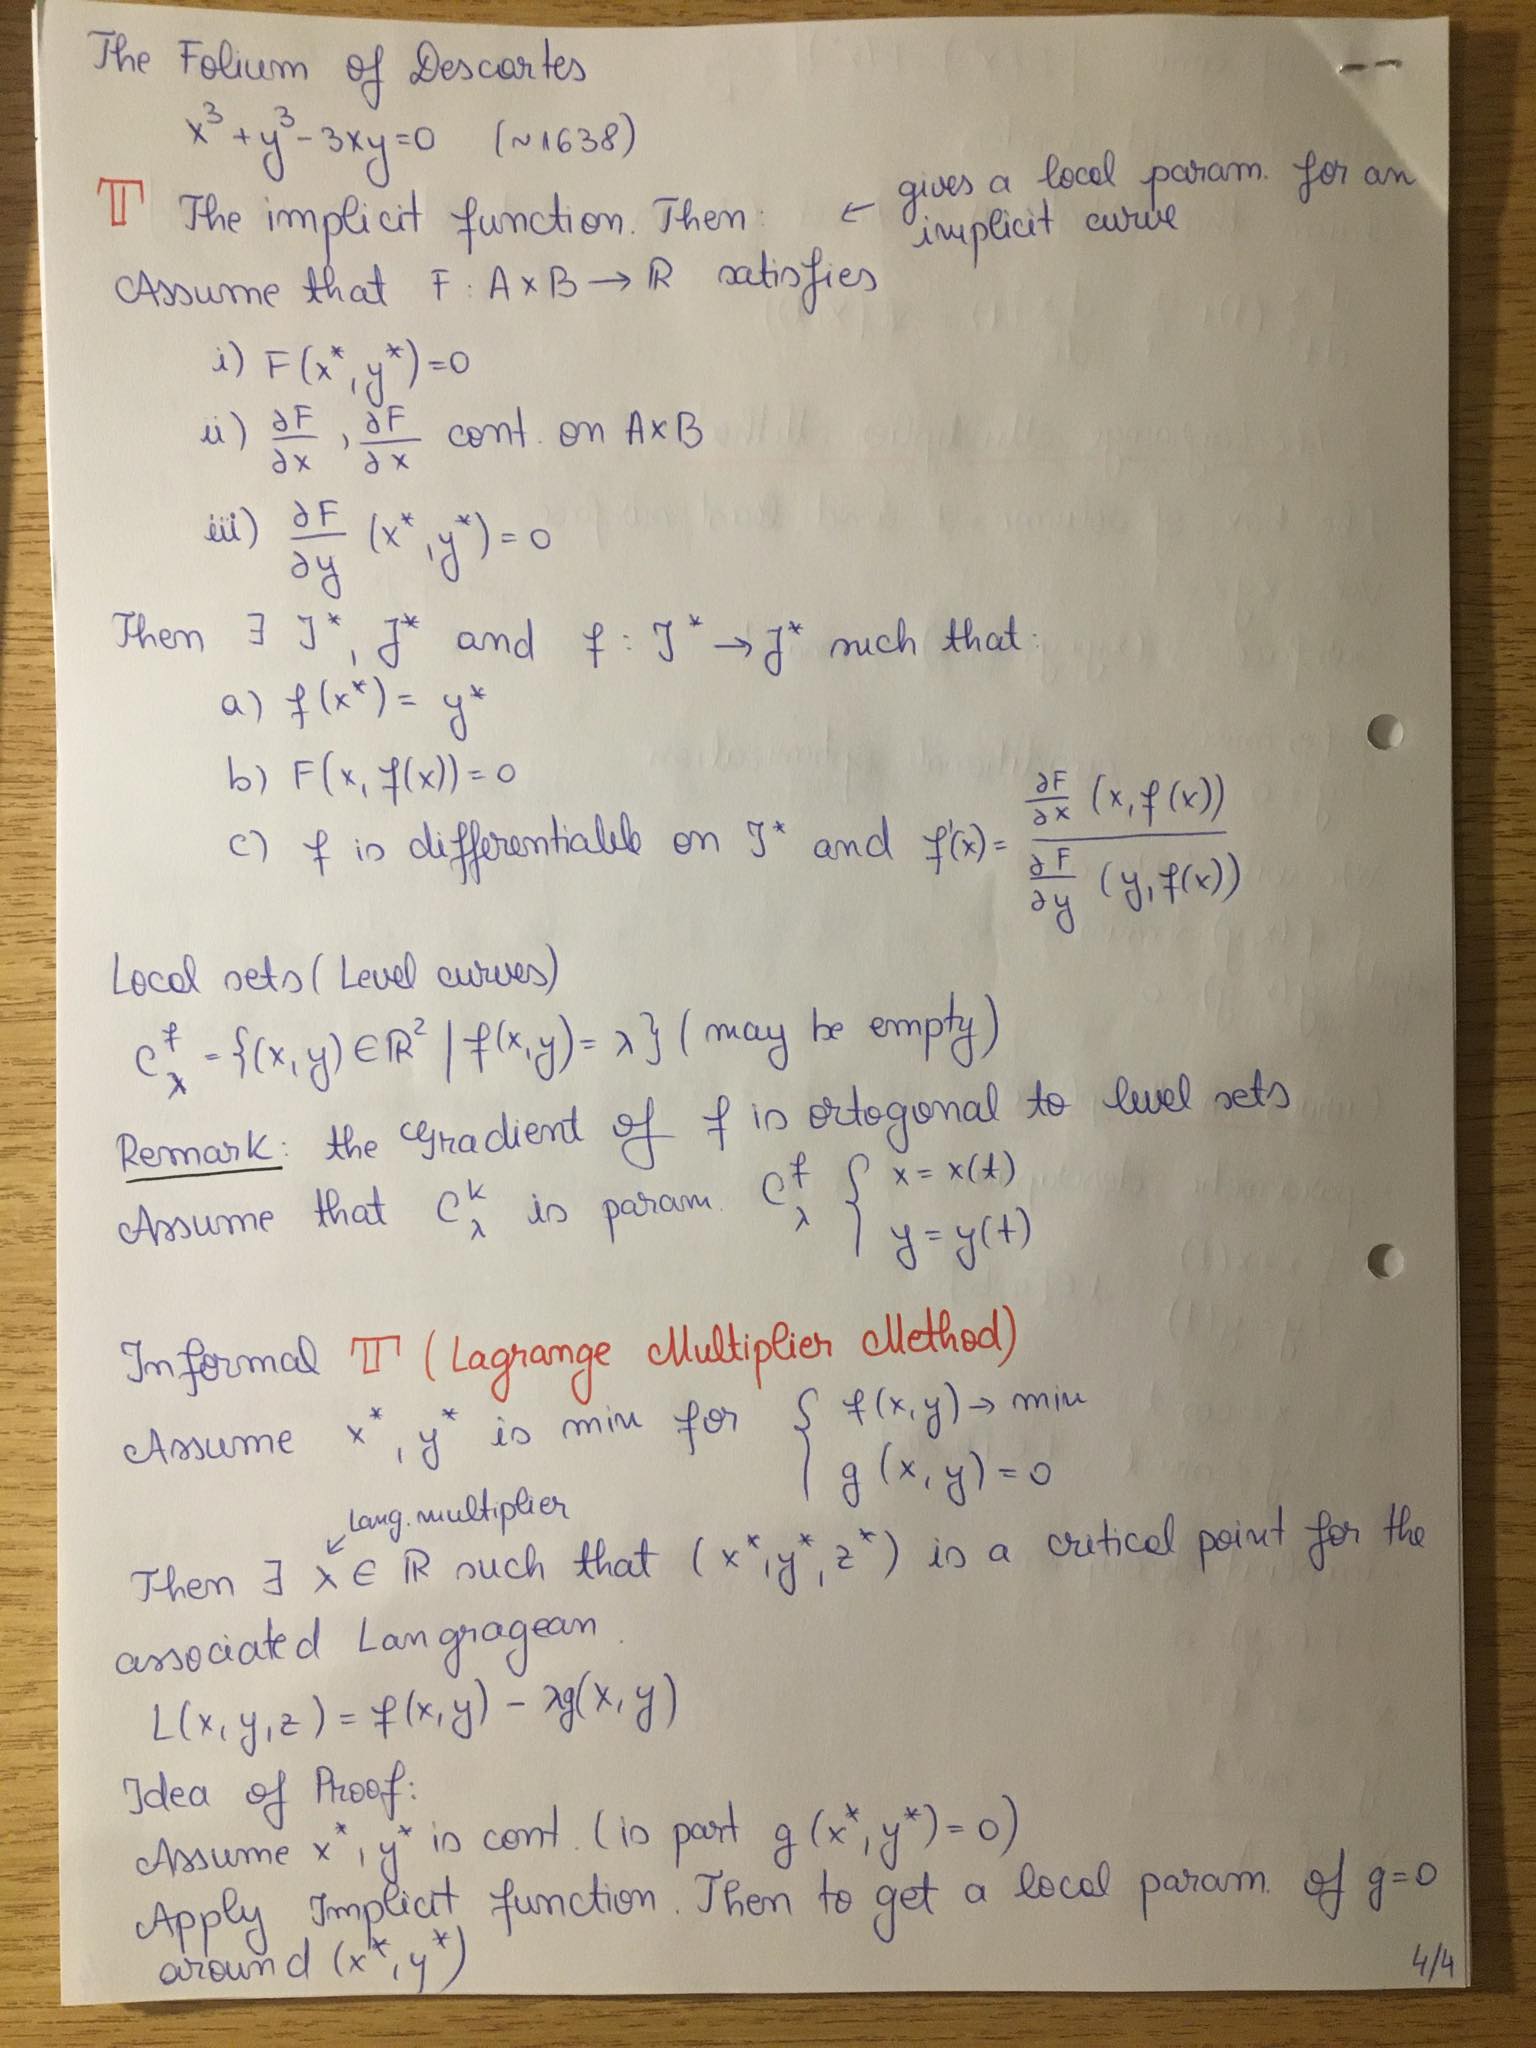 The Folium of Descartes
x³ + y³ - 3xy = 0 (~1638)
T The implicit function. Then: ← gives a local param. for an
implicit curve
Assume that F : A × B → ℝ satisfies
i) F(x*, y*) = 0
ii) ∂F/∂x , ∂F/∂x cont. on A×B
iii) ∂F/∂y (x*, y*) = 0
Then ∃ I*, J* and f : I* → J* such that:
a) f(x*) = y*
b) F(x, f(x)) = 0
c) f is differentiable on I* and f'(x) = ∂F/∂x (x, f(x)) / ∂F/∂y (y, f(x))
Local sets (Level curves)
C_λ^f = {(x, y) ∈ ℝ² | f(x, y) = λ} (may be empty)
Remark: the Gradient of f is ortogonal to level sets
Assume that C_λ^k is param. C_λ^f { x = x(t)
y = y(t)
Informal T (Lagrange Multiplier Method)
Assume x*, y* is min for { f(x, y) → min
g(x, y) = 0
Lang. multiplier
Then ∃ λ ∈ ℝ such that (x*, y*, z*) is a critical point for the
associated Langragean.
L(x, y, z) = f(x, y) - λg(x, y)
Idea of Proof:
Assume x*, y* is cont. (is part g(x*, y*) = 0)
Apply Implicit function. Then to get a local param. of g=0
around (x*, y*)
4/4